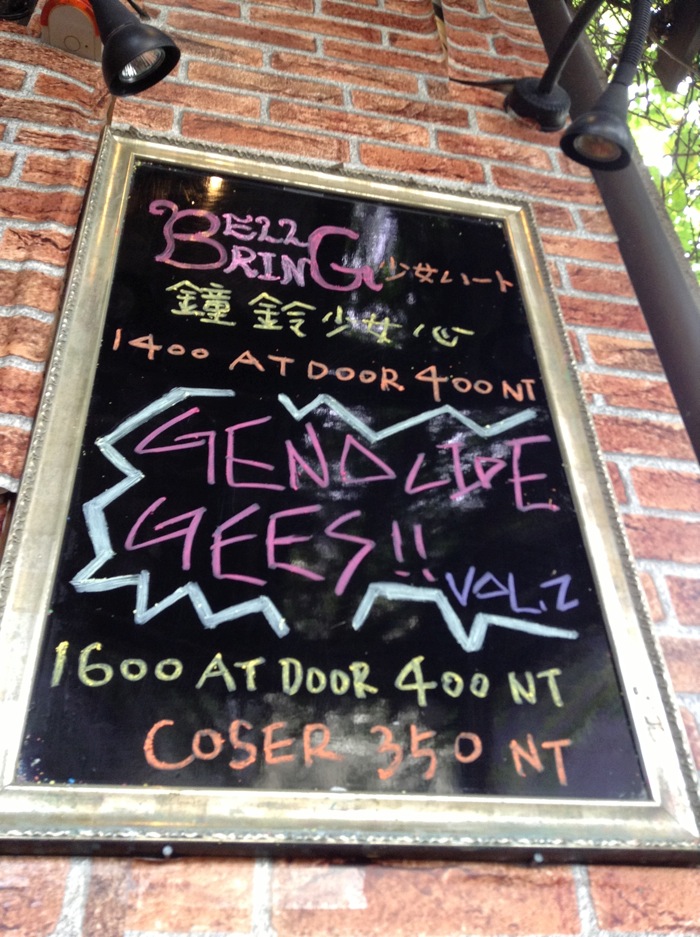 BELL
BRING 少女ハート
鐘鈴少女心
1400 AT DOOR 400 NT
GENOCIDE
GEES!!
VOL.2
1600 AT DOOR 400 NT
COSER 350 NT